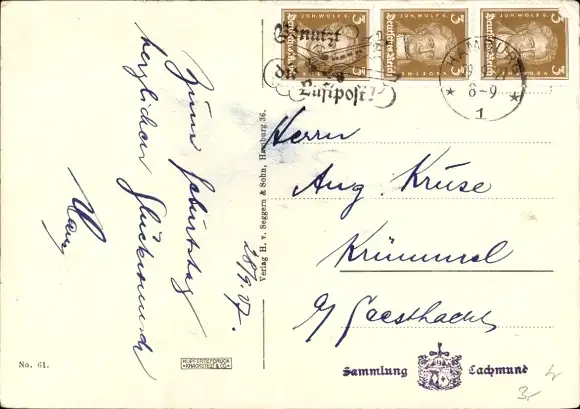 Zum Geburtstag
herzlichen Glückwunsch
28/9. 27.
No. 61.
KUPFERTIEFDRUCK
KNACKSTEDT & CO
Verlag H. v. Seggern & Sohn, Hamburg 36.
3 JOH. WOLFG. V. GOETHE 3
Deutsches Reich
3 JOH. WOLFG. V. GOETHE 3
Deutsches Reich
3 JOH. WOLFG. V. GOETHE 3
Deutsches Reich
Benutzt
die
Luftpost!
HAMBURG
8-9
1
Herrn
Aug. Kruse
Krümmel
b/ Geesthacht
Sammlung Lachmund
3,-